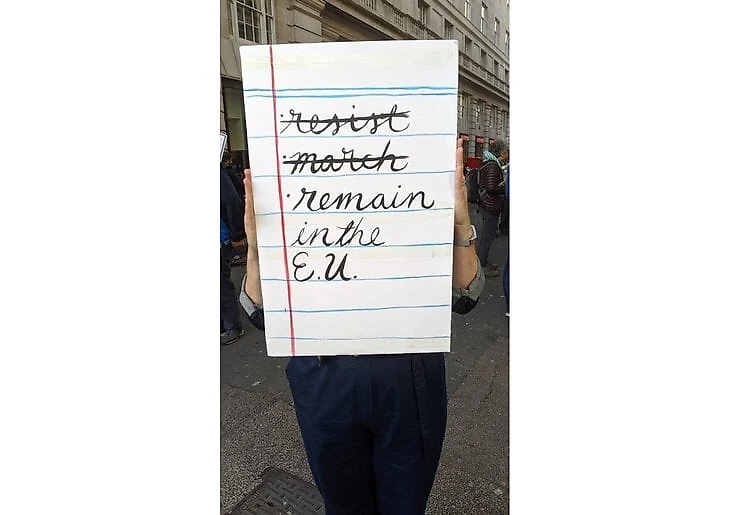 · resist
· march
· remain
in the
E.U.